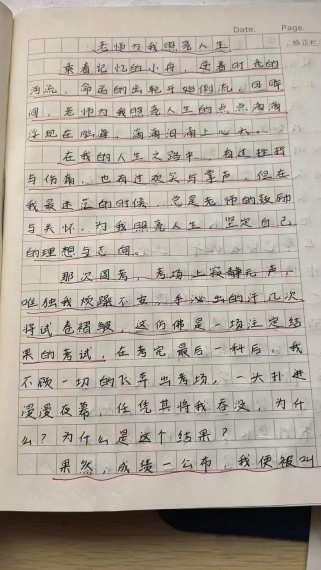 Date. Page.
老师为我照亮人生
乘着记忆的小舟,逆着时光的
河流,命运的齿轮开始倒流,回眸
间,老师为我照亮人生的点点滴滴
浮现在脑海,涓涓汩涌上心头。
在我的人生之路中,有过挫折
与伤痛,也有过欢笑与掌声,但在
我最迷茫的时候,总是老师的鼓励
与关怀,为我照亮人生,坚定自己
的理想与志向。
那次周考,考场上寂静无声,
唯独我烦躁不安,手心出的汗几次
将试卷褶皱,这仿佛是一场注定结
果的考试,在考完最后一科后,我
不顾一切的飞奔出考场,一头扑进
漫漫夜幕,任凭其将我吞没,为什
么?为什么是这个结果?
果然,成绩一公布,我便被叫